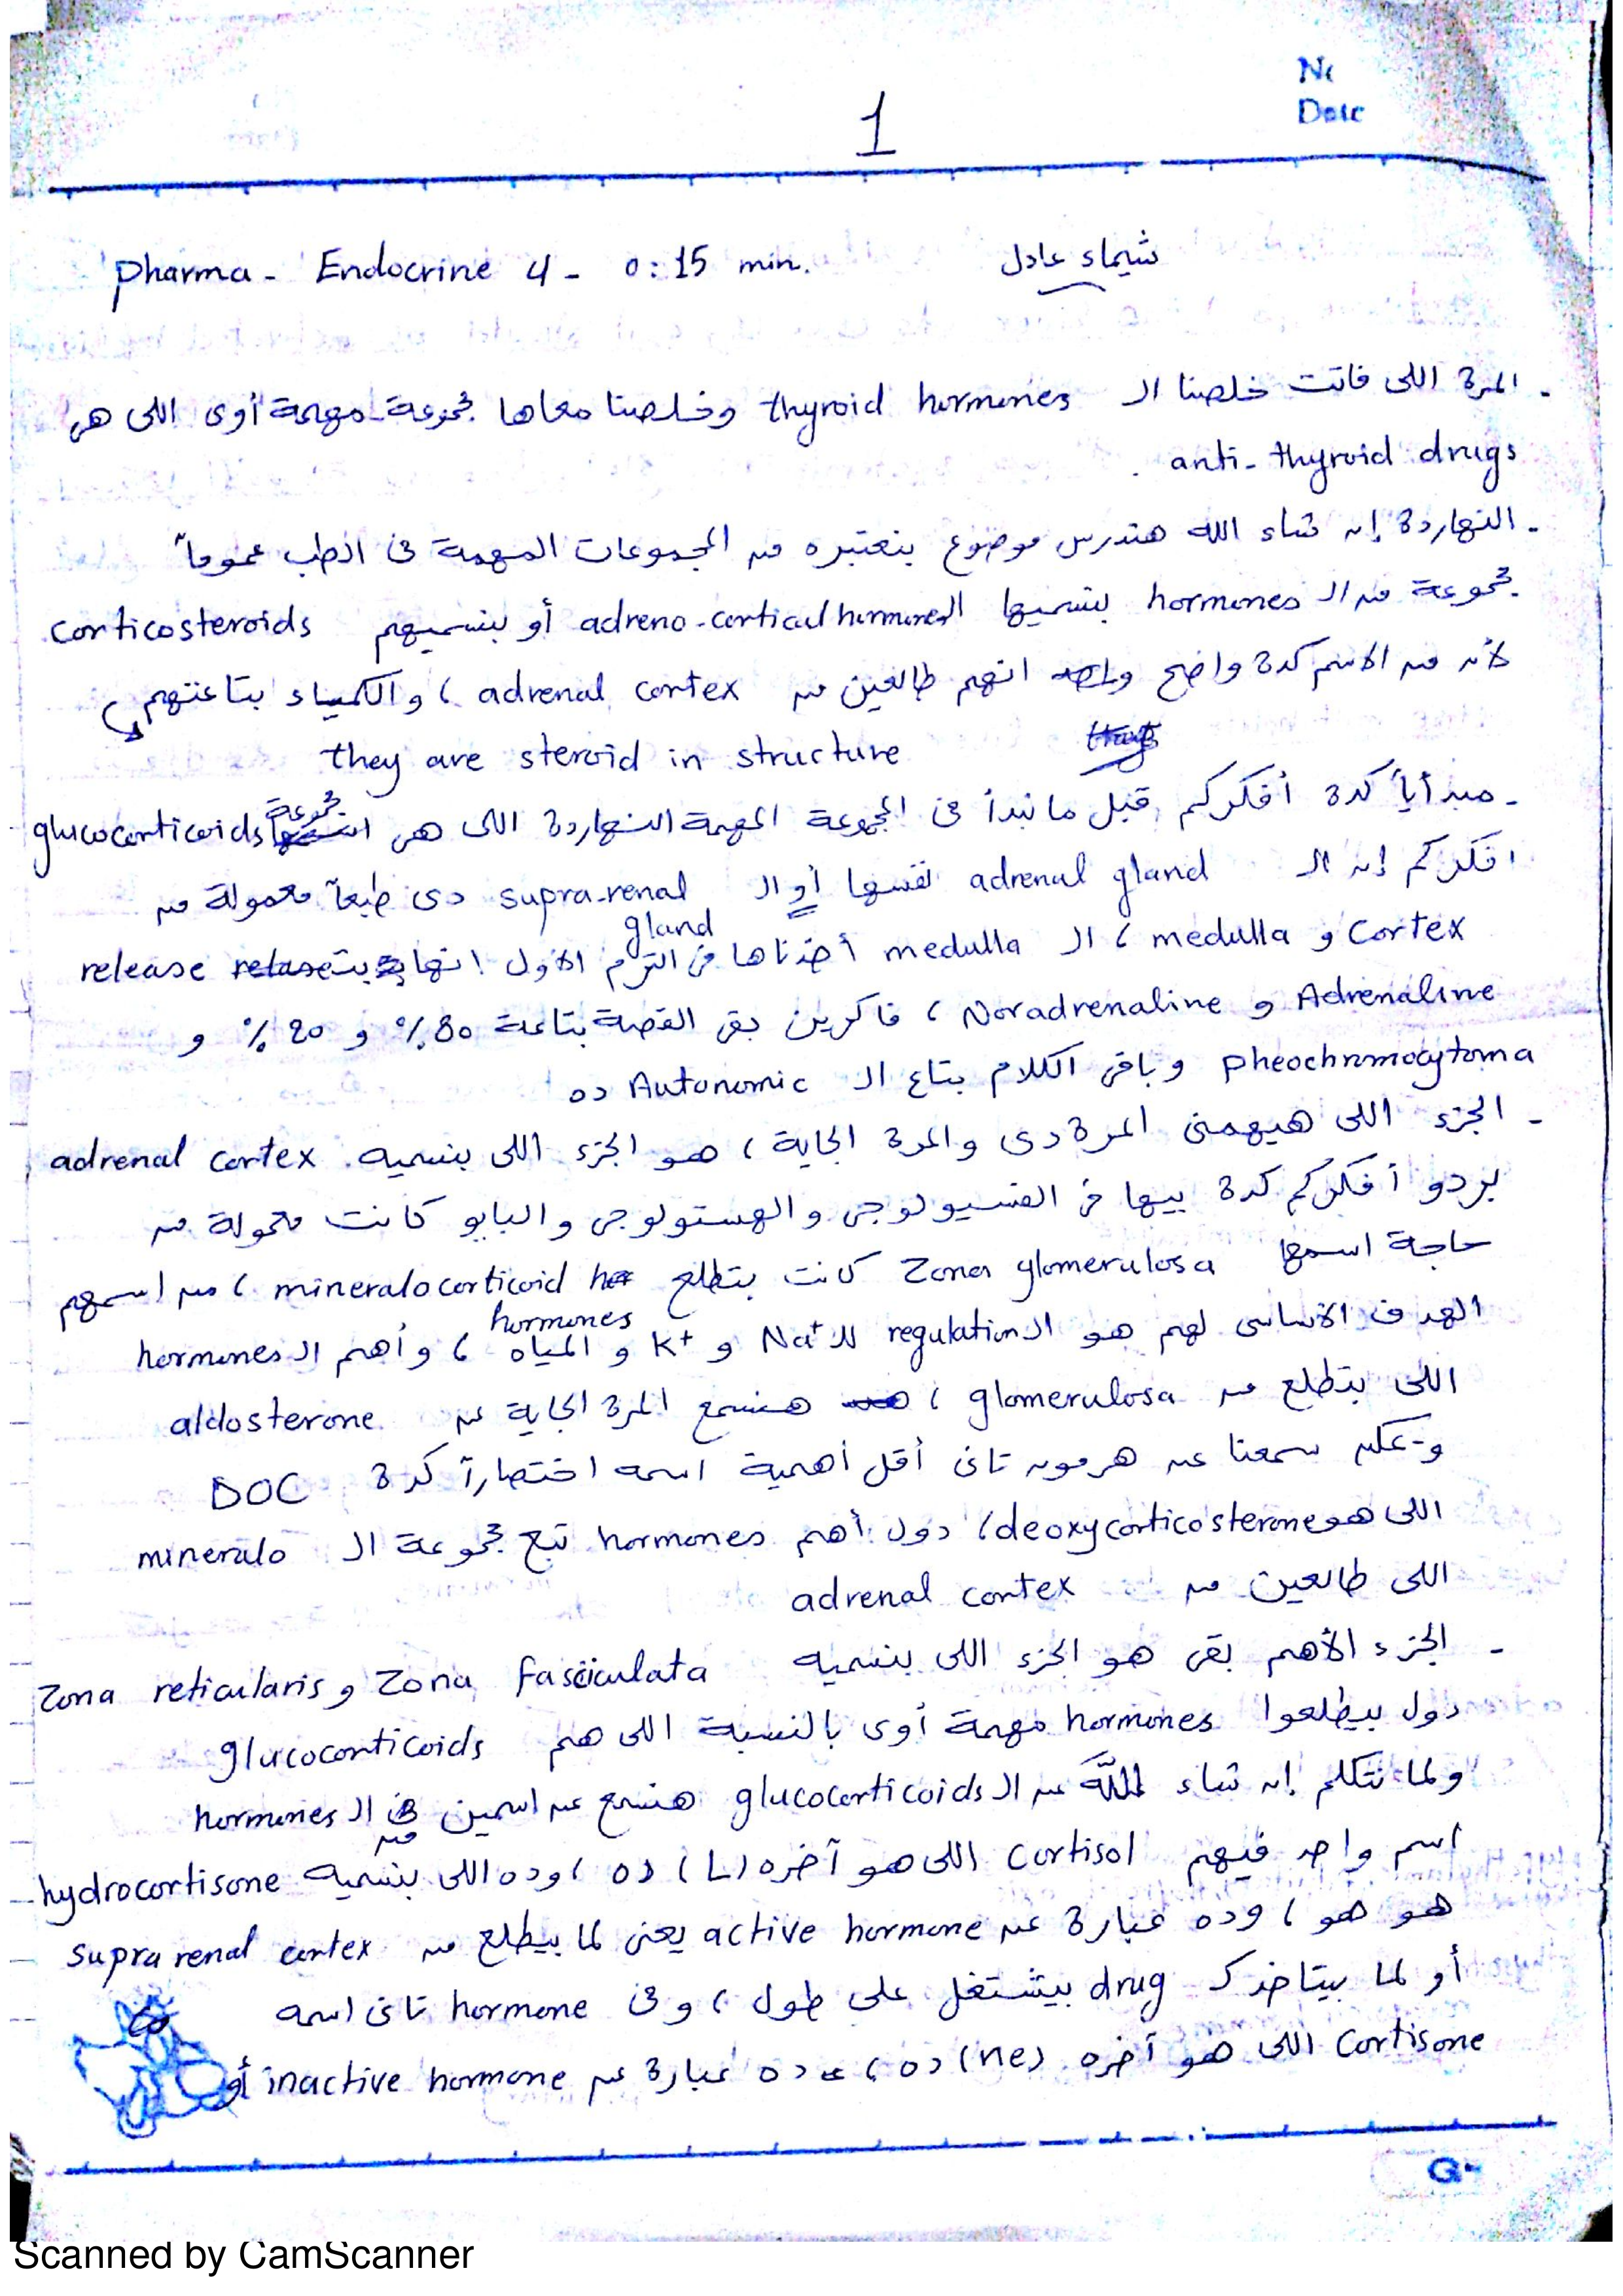 No
Date
1
Pharma - Endocrine 4 - 0:15 min. شيماء عادل
- المرة اللى فاتت خلصنا الـ thyroid hormones وخلصنا معاها مجموعة مهمة أوى اللى هى
anti-thyroid drugs .
- النهاردة إن شاء الله هندرس موضوع بنعتبره من المجموعات المهمة فى الطب عموماً
مجموعة من الـ hormones بنسميها الـ adreno-cortical hormones أو بنسميهم corticosteroids
لأن من الاسم كدة واضح انهم طالعين من adrenal cortex ، والكمياء بتاعتهم
they are steroid in structure
- مبدأياً كدة أفكركم قبل ما نبدأ فى المجموعة المهمة النهاردة اللى هى مجموعة glucocorticoids
افكركم إن الـ adrenal gland نفسها أو الـ supra-renal gland دى طبعاً معمولة من
cortex و medulla ، الـ medulla أخذناها فى الترم الأول انها بت release
Adrenaline و Noradrenaline ، فاكرين بقى القصة بتاعة 80% و 20% و
pheochromocytoma وباقى الكلام بتاع الـ Autonomic ده
- الجزء اللى هيهمنى المرة دى والمرة الجاية ، هو الجزء اللى بنسميه adrenal cortex .
بردو أفكركم كدة بيها فى الفسيولوجى والهستولوجى والباثو كانت معمولة من
حاجة اسمها Zona glomerulosa كانت بتطلع mineralocorticoid hormones ، من اسمهم
الهدف الأساسى لهم هو الـ regulation للـ Na+ و K+ و المياه ، وأهم الـ hormones
اللى بتطلع من glomerulosa ، هنسمع المرة الجاية عن aldosterone
و ممكن سمعنا عن هرمون تانى أقل أهمية اسمه اختصاراً كدة DOC
اللى هو deoxycorticosterone ، دول أهم hormones تبع مجموعة الـ mineralo
اللى طالعين من adrenal cortex
- الجزء الأهم بقى هو الجزء اللى بنسميه Zona fasciculata و Zona reticularis
دول بيطلعوا hormones مهمة أوى بالنسبة اللى هم glucocorticoids
ولما نتكلم إن شاء الله عن الـ glucocorticoids هنسمع عن اسمين من الـ hormones
اسم واحد فيهم cortisol اللى هو آخره (L) ده ، وده اللى بنسميه hydrocortisone
هو هو ، وده عبارة عن active hormone يعنى لما بيطلع من supra renal cortex
أو لما بيتاخد كـ drug بيشتغل على طول ، وفى hormone تانى اسمه
cortisone اللى هو آخره (ne) ده ، ده عبارة عن inactive hormone أو
Scanned by CamScanner